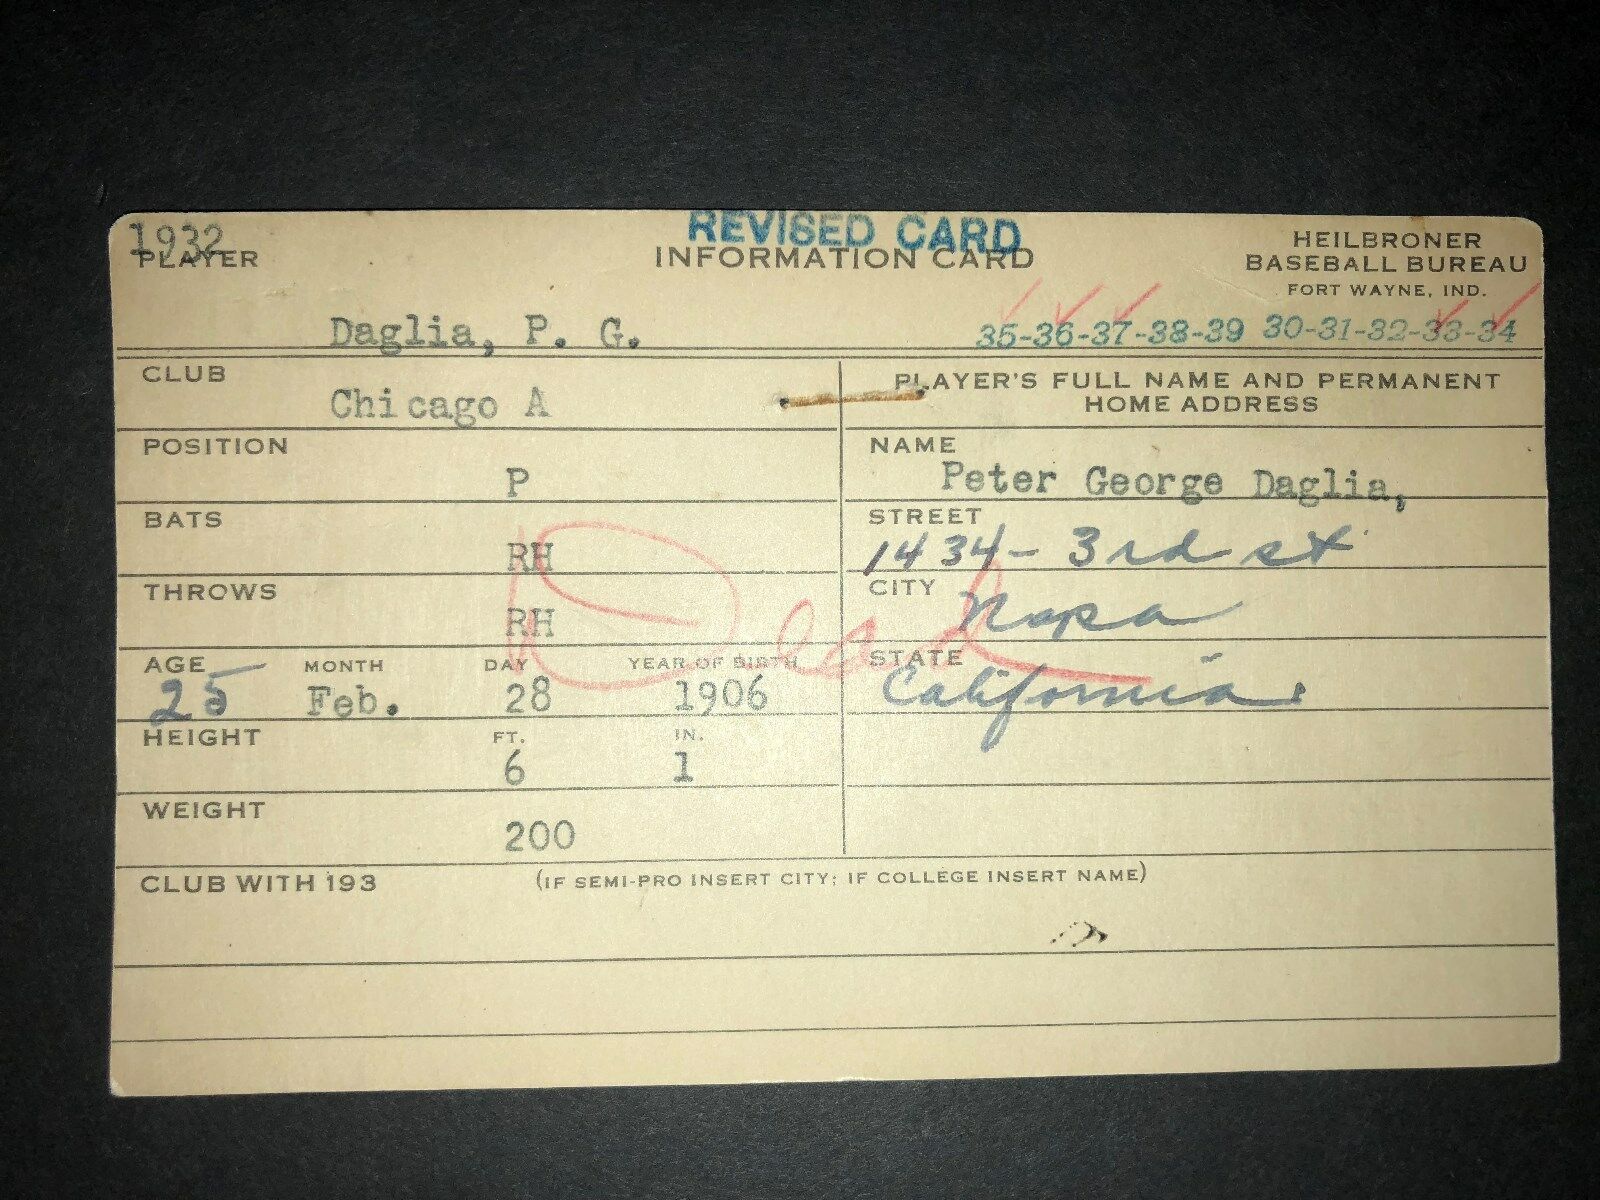 1932 REVISED CARD
PLAYER INFORMATION CARD HEILBRONER
BASEBALL BUREAU
FORT WAYNE, IND.
Daglia, P. G. 35-36-37-38-39 30-31-32-33-34
CLUB
Chicago A
PLAYER'S FULL NAME AND PERMANENT
HOME ADDRESS
POSITION
P
NAME
Peter George Daglia,
BATS
RH
STREET
1434- 3rd st
THROWS
RH
CITY
Napa
Dead
AGE MONTH DAY YEAR OF BIRTH
25 Feb. 28 1906
STATE
California.
HEIGHT FT. IN.
6 1
WEIGHT
200
CLUB WITH 193 (IF SEMI-PRO INSERT CITY; IF COLLEGE INSERT NAME)